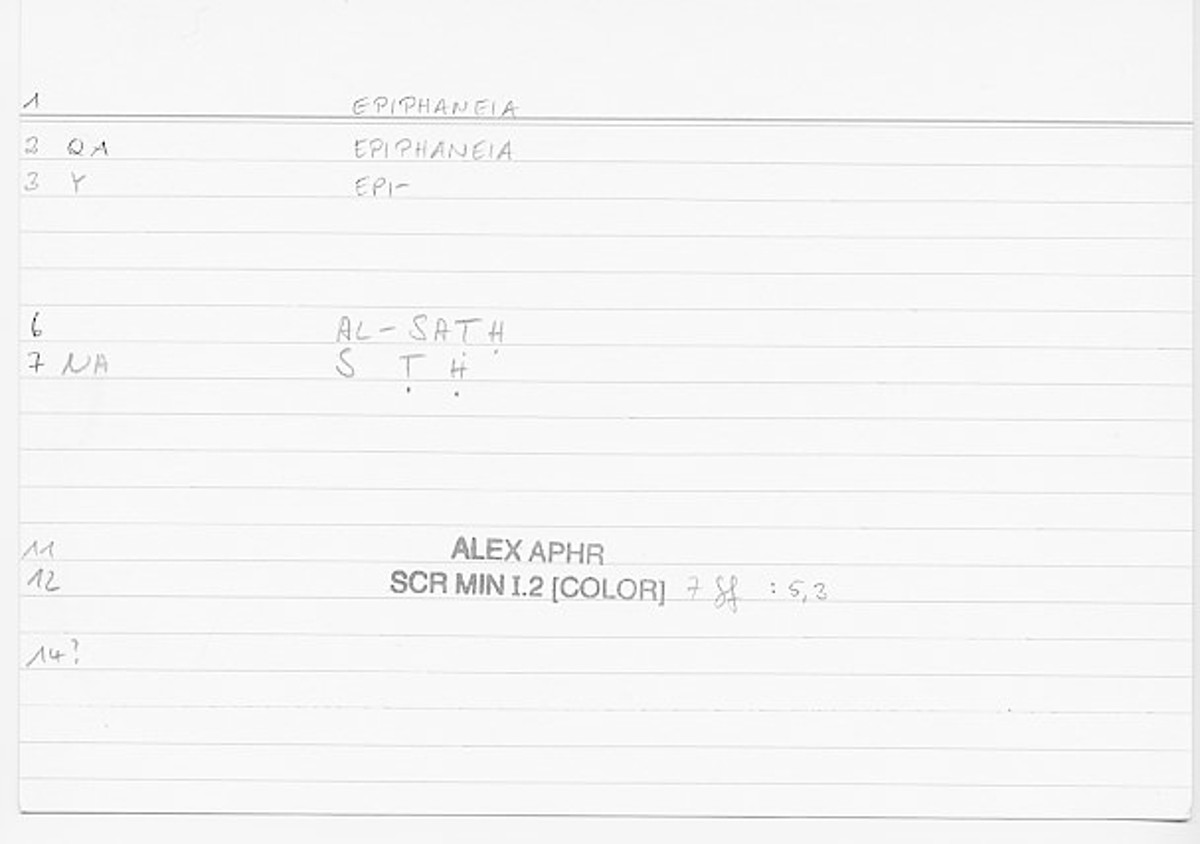 1 EPIPHANEIA
2 QA EPIPHANEIA
3 Y EPI-
6 AL-SATḤ
7 NA S Ṭ Ḥ
11 ALEX APHR
12 SCR MIN I.2 [COLOR] 7 ff : 5,3
14?